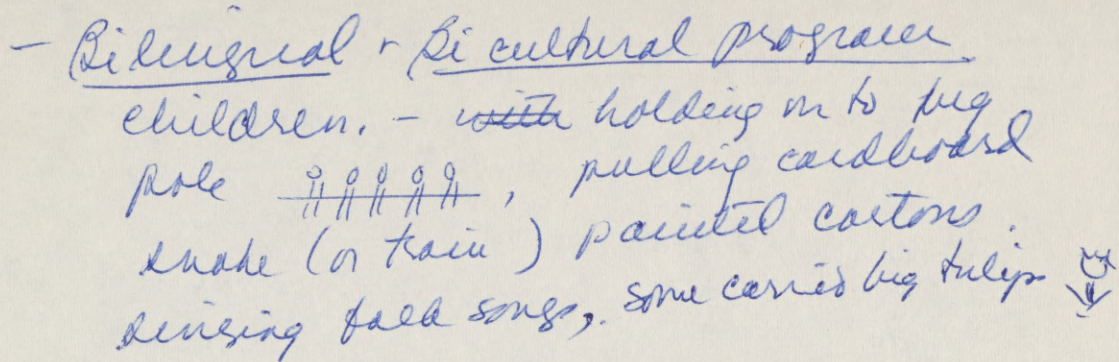 - Bilingual + Bi cultural program
children. - with holding on to big
pole , pulling cardboard
snake (or train) painted cartons.
singing folk songs, some carried big tulips